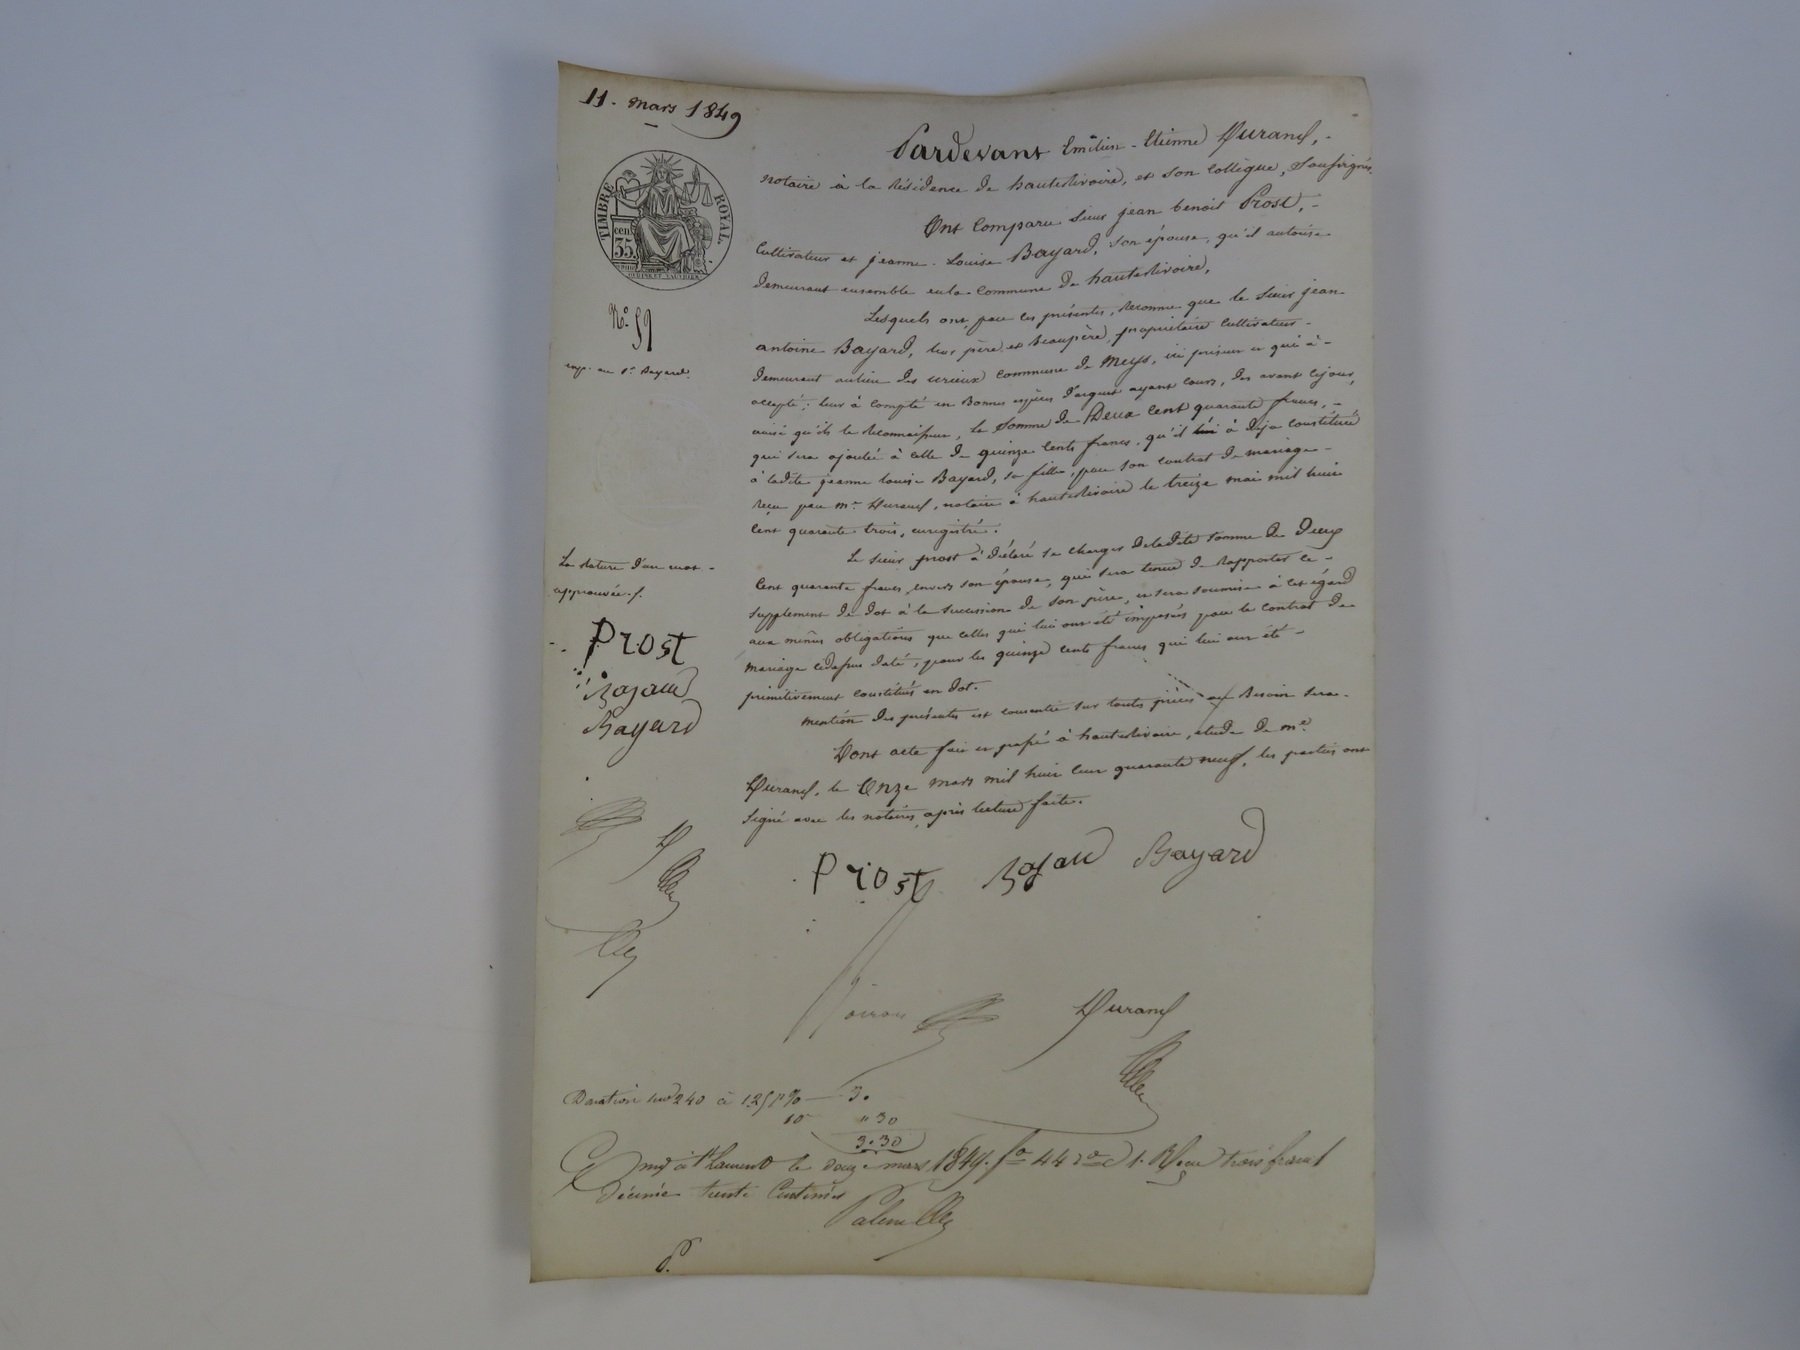 11. mars 1849
TIMBRE ROYAL
cen
35
N.º 59
exp. au S.r Bayard.
Pardevant Emilien-Etienne Durand,
notaire à la Résidence de hauterivoire, et son Collègue, soussignés,
Ont Comparu Sieur jean benoit Prost,
Cultivateur et jeanne-Louise Bayard, son épouse, qu'il autorise
demeurant ensemble en la Commune de hauterivoire,
Lesquels ont, par ces présentes, Reconnu que le Sieur jean
antoine Bayard, leur père et Beaupère, propriétaire Cultivateur
demeurant au lieu des commune de Meys, ici présent et qui à
accepté; leur à compté en Bonnes espèces d'argent ayant cours, dès avant cejour,
ainsi qu'ils le Reconnaissent, la Somme de Deux Cent quarante francs,
qui sera ajoutée à celle de quinze Cents francs, qu'il lui à déja constituée
à ladite jeanne Louise Bayard, sa fille, par son contrat de mariage
reçu par m.e Durand, notaire à hauterivoire le treize mai mil huit
Cent quarante trois, enregistré.
Le Sieur prost à déclaré se charger de ladite somme de Deux
Cent quarante francs envers son épouse, qui sera tenue de Rapporter ce
supplement de dot à la succession de son père, et sera soumise à cet égard
aux mêmes obligations que celles qui lui ont été imposées par le contrat de
mariage cidessus daté, pour les quinze cents francs qui lui ont été
primitivement constitués en dot.
mention des présentes est consentie sur toutes pièces où Besoin sera.
Dont acte fait et passé à hauterivoire, étude de m.e
Durand, le Onze mars mil huit cent quarante neuf, les parties ont
Signé avec les notaires, après lecture faite.
La Rature d'un mot
approuvée.
Prost
Bayard
Bayard
Prost Bayard Bayard
Durand
Donation sur 240 à 1.25 p % 3.
10 " 30
3.30
le douze mars 1849. f.o 44 r.o c 1. Reçu trois francs
décime trente Centimes